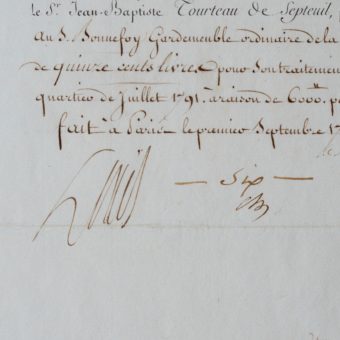 Le Sr. Jean-Baptiste Tourteau de Septeuil,
au S. Bonnefoy Gardemeuble ordinaire de la
de quinze cents livres pour son traitement
quartier de Juillet 1791. a raison de 6000.
fait à Paris le premier Septembre
Louis
— Six —